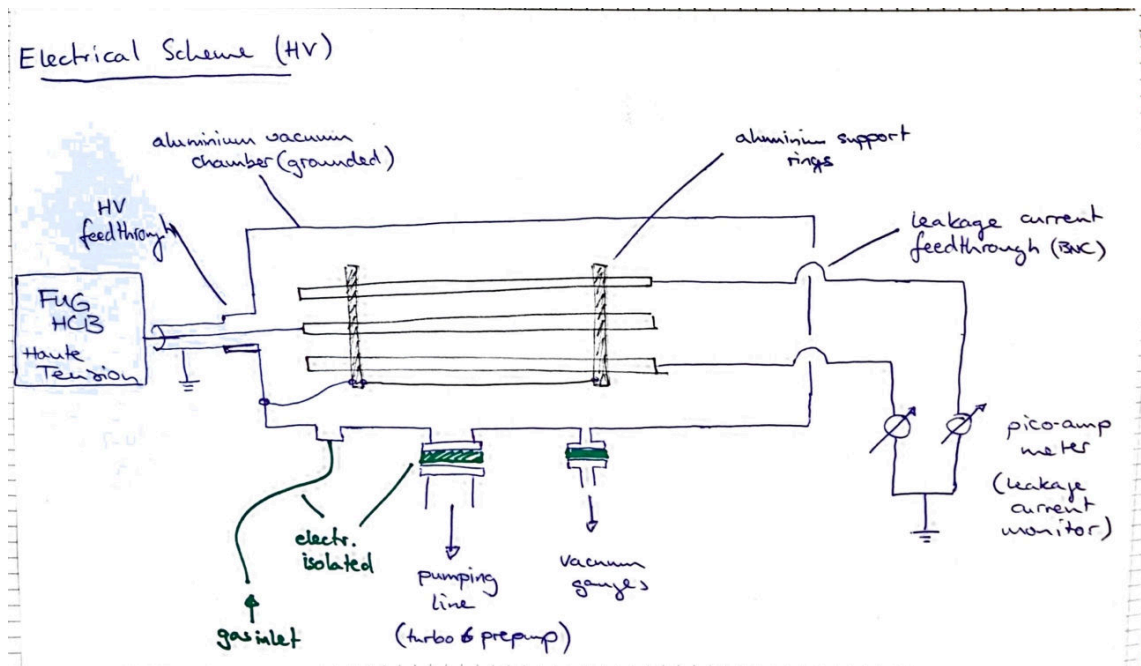 Electrical Scheme (HV)
aluminium vacuum
chamber (grounded)
aluminium support
rings
HV
feedthrough
leakage current
feedthrough (BNC)
FuG
HCB
Haute
Tension
pico-amp
meter
(leakage
current
monitor)
electr.
isolated
pumping
line
(turbo & prepump)
vacuum
gauges
gas inlet